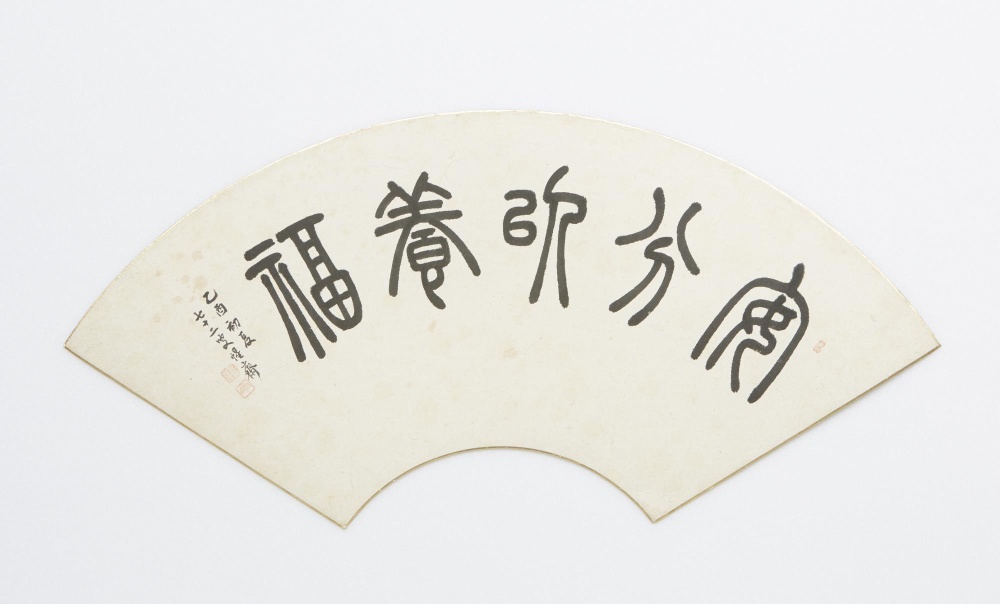 安分以養福
乙酉初夏
七十二叟惺齋